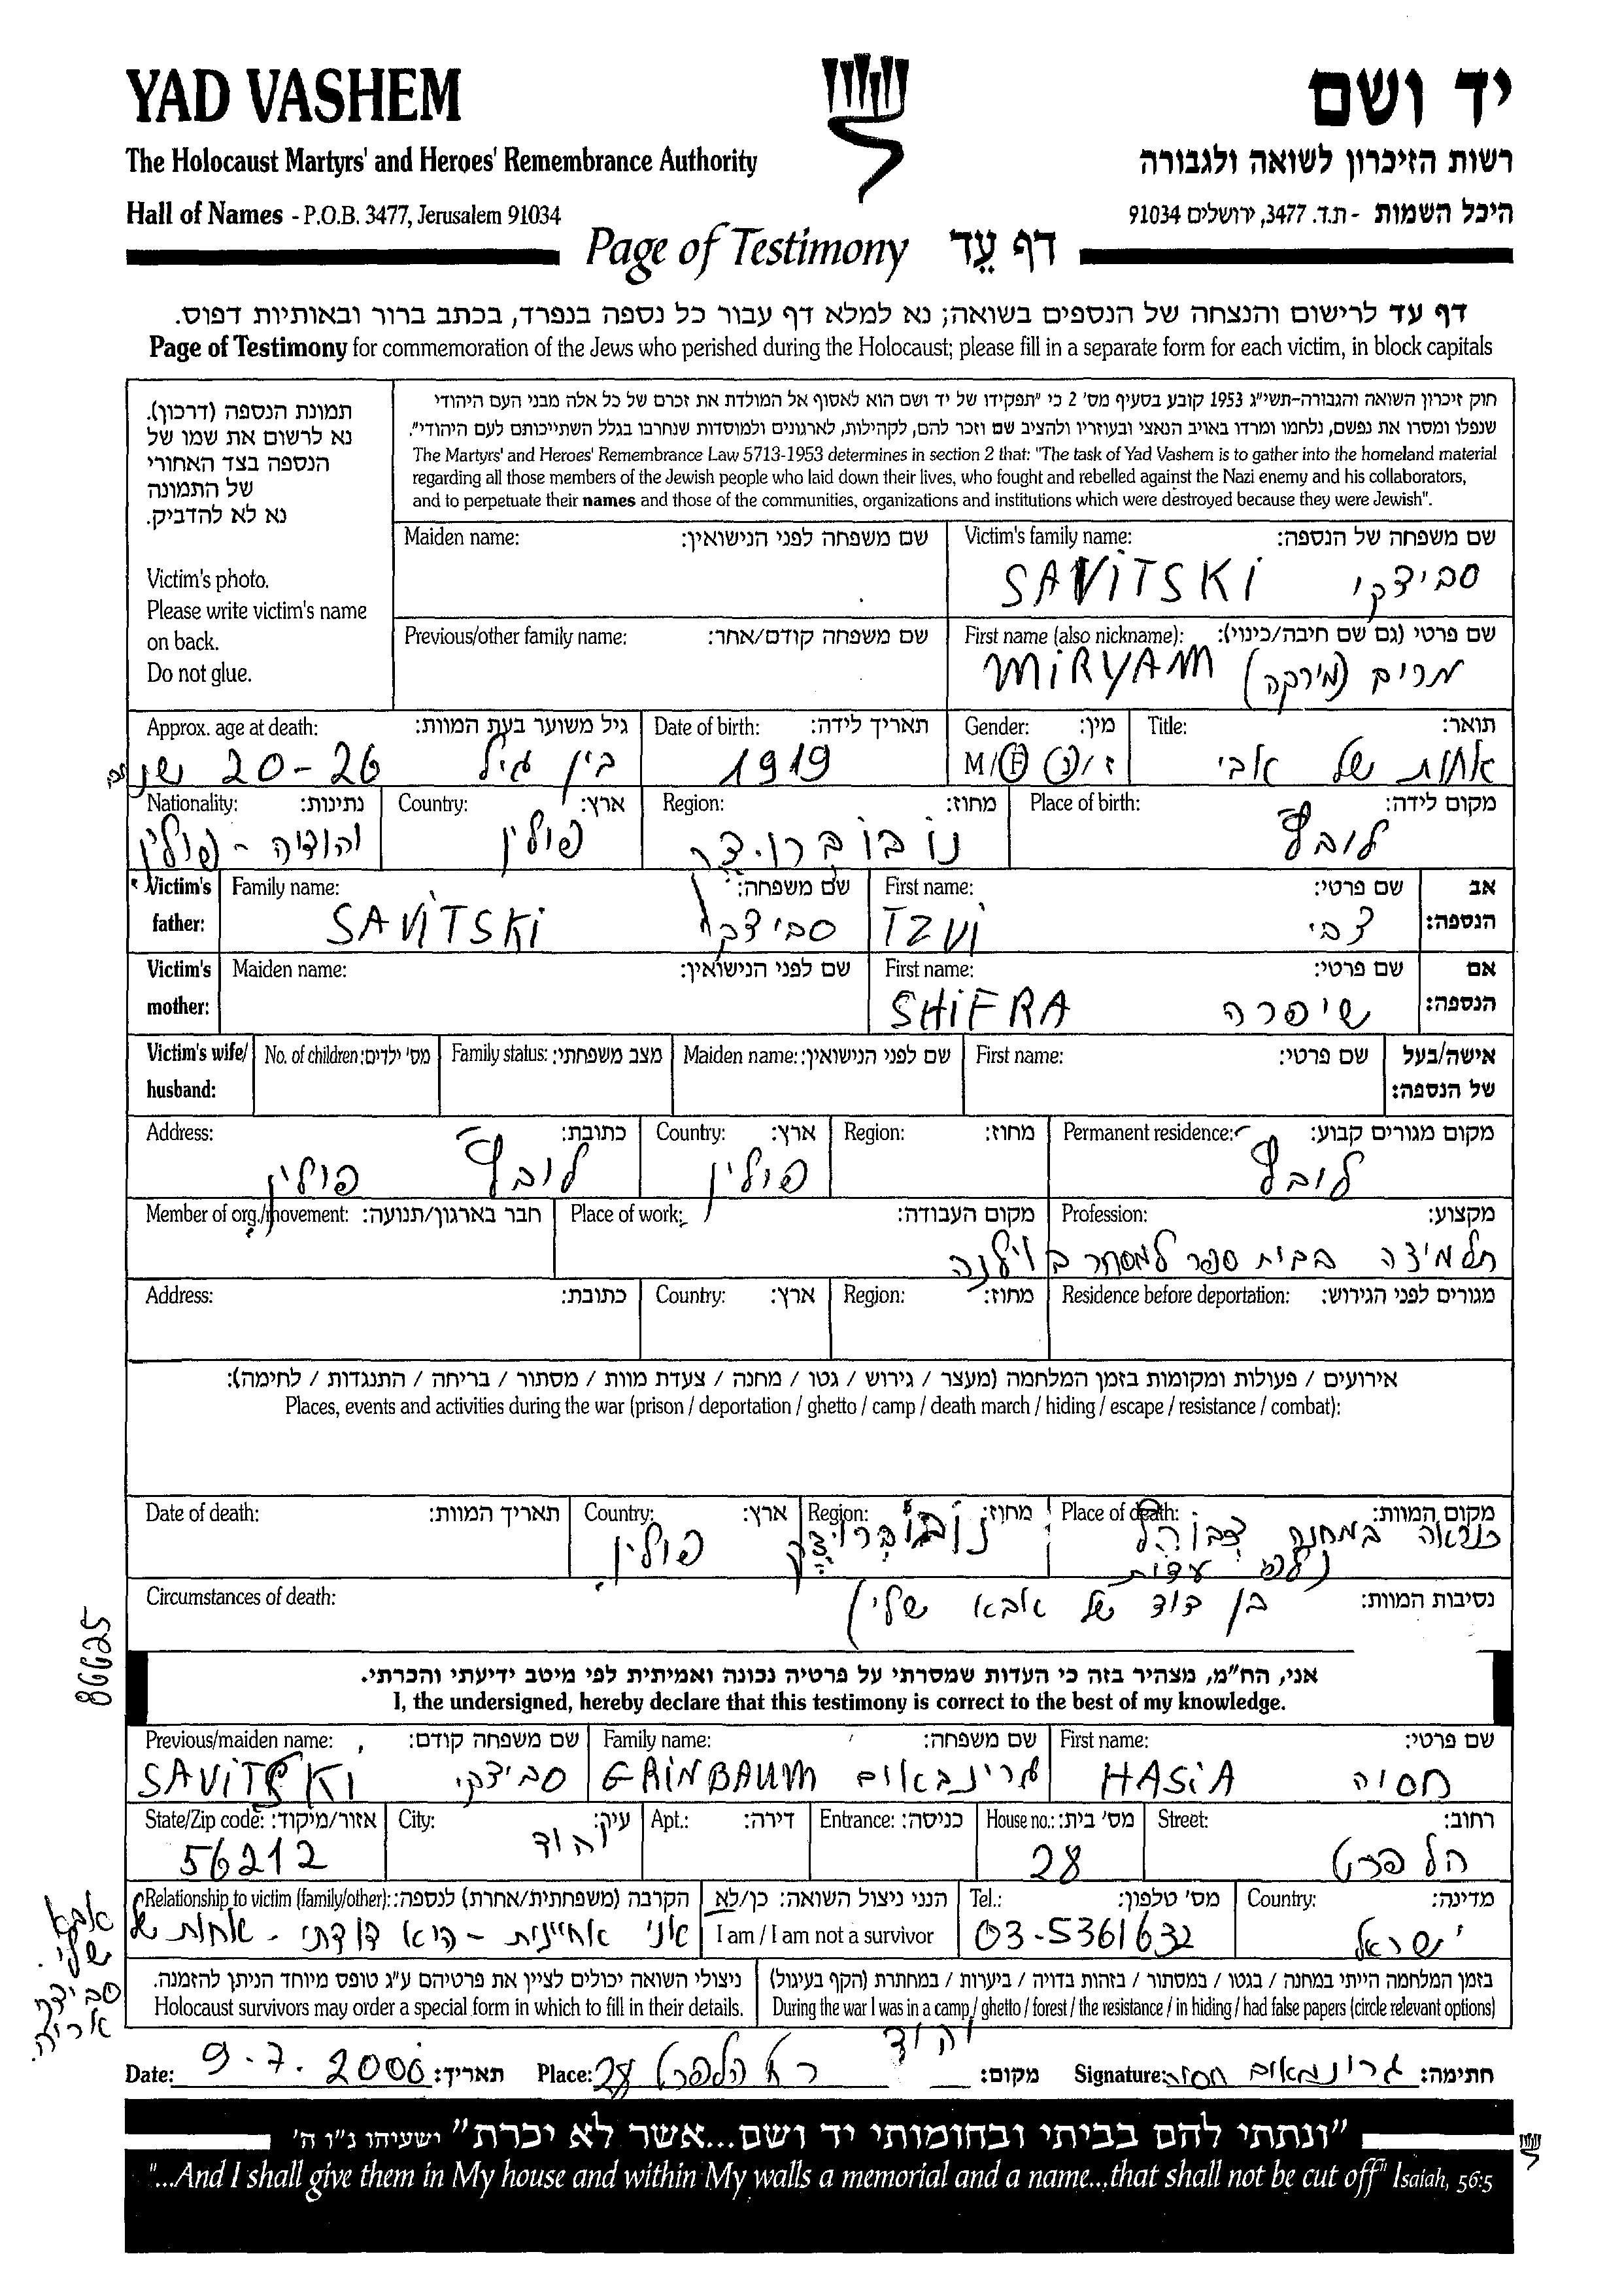 YAD VASHEM
יד ושם
The Holocaust Martyrs' and Heroes' Remembrance Authority
רשות הזיכרון לשואה ולגבורה
Hall of Names - P.O.B. 3477, Jerusalem 91034
היכל השמות - ת.ד. 3477, ירושלים 91034
Page of Testimony דף עֵד
דף עד לרישום והנצחה של הנספים בשואה; נא למלא דף עבור כל נספה בנפרד, בכתב ברור ובאותיות דפוס.
Page of Testimony for commemoration of the Jews who perished during the Holocaust; please fill in a separate form for each victim, in block capitals
תמונת הנספה (דרכון).
נא לרשום את שמו של
הנספה בצד האחורי
של התמונה
נא לא להדביק.
Victim's photo.
Please write victim's name
on back.
Do not glue.
חוק זיכרון השואה והגבורה-תשי"ג 1953 קובע בסעיף מס' 2 כי "תפקידו של יד ושם הוא לאסוף אל המולדת את זכרם של כל אלה מבני העם היהודי
שנפלו ומסרו את נפשם, נלחמו ומרדו באויב הנאצי ובעוזריו ולהציב שם וזכר להם, לקהילות, לארגונים ולמוסדות שנחרבו בגלל השתייכותם לעם היהודי".
The Martyrs' and Heroes' Remembrance Law 5713-1953 determines in section 2 that: "The task of Yad Vashem is to gather into the homeland material
regarding all those members of the Jewish people who laid down their lives, who fought and rebelled against the Nazi enemy and his collaborators,
and to perpetuate their names and those of the communities, organizations and institutions which were destroyed because they were Jewish".
Maiden name: שם משפחה לפני הנישואין:
Victim's family name: שם משפחה של הנספה:
SAVITSKI סביצקי
Previous/other family name: שם משפחה קודם/אחר:
First name (also nickname): שם פרטי (גם שם חיבה/כינוי):
MIRYAM מרים (מירקה)
Approx. age at death: גיל משוער בעת המוות:
בין גיל 20-26 שנ
Date of birth: תאריך לידה:
1919
Gender: מין:
M/F ז/נ
Title: תואר:
אחות של אבי
Nationality: נתינות:
יהודיה - פולין
Country: ארץ:
פולין
Region: מחוז:
נובוברודצק
Place of birth: מקום לידה:
לובץ
Victim's father: אב הנספה:
Family name: שם משפחה:
SAVITSKI סביצקי
First name: שם פרטי:
TZVI צבי
Victim's mother: אם הנספה:
Maiden name: שם לפני הנישואין:
First name: שם פרטי:
SHIFRA שיפרה
Victim's wife/ husband: אישה/בעל של הנספה:
No. of children: מס' ילדים:
Family status: מצב משפחתי:
Maiden name: שם לפני הנישואין:
First name: שם פרטי:
Address: כתובת:
לובץ פולין
Country: ארץ:
פולין
Region: מחוז:
Permanent residence: מקום מגורים קבוע:
לובץ
Member of org./movement: חבר בארגון/תנועה:
Place of work: מקום העבודה:
Profession: מקצוע:
תלמידה בבית ספר למסחר בוילנה
Address: כתובת:
Country: ארץ:
Region: מחוז:
Residence before deportation: מגורים לפני הגירוש:
אירועים / פעולות ומקומות בזמן המלחמה (מעצר / גירוש / גטו / מחנה / צעדת מוות / מסתור / בריחה / התנגדות / לחימה):
Places, events and activities during the war (prison / deportation / ghetto / camp / death march / hiding / escape / resistance / combat):
Date of death: תאריך המוות:
Country: ארץ:
פולין
Region: מחוז:
נובוברודצק
Place of death: מקום המוות:
כנראה במחנה
עדות
Circumstances of death: נסיבות המוות:
בן דוד של אבא שלי)
86625
אני, הח"מ, מצהיר בזה כי העדות שמסרתי על פרטיה נכונה ואמיתית לפי מיטב ידיעתי והכרתי.
I, the undersigned, hereby declare that this testimony is correct to the best of my knowledge.
Previous/maiden name: שם משפחה קודם:
SAVITSKI סביצקי
Family name: שם משפחה:
GRINBAUM גרינבאום
First name: שם פרטי:
HASIA חסיה
State/Zip code: אזור/מיקוד:
56212
City: עיר:
יהוד
Apt.: דירה:
Entrance: כניסה:
House no.: מס' בית:
28
Street: רחוב:
הלפרט
Relationship to victim (family/other): הקרבה (משפחתית/אחרת) לנספה:
אני אחיינית - היא דודתי - אחות של
אבא
שלי.
סביצקי
אריה.
הנני ניצול השואה: כן/לא
I am / I am not a survivor
Tel.: מס' טלפון:
03-5361632
Country: מדינה:
ישראל
ניצולי השואה יכולים לציין את פרטיהם ע"ג טופס מיוחד הניתן להזמנה.
Holocaust survivors may order a special form in which to fill in their details.
בזמן המלחמה הייתי במחנה / בגטו / במסתור / בזהות בדויה / ביערות / במחתרת (הקף בעיגול)
During the war I was in a camp / ghetto / forest / the resistance / in hiding / had false papers (circle relevant options)
Date: 9.7.2006 תאריך:
Place: 28 הלפרט יהוד מקום:
Signature: גרינבאום חסיה חתימה:
"ונתתי להם בביתי ובחומותי יד ושם...אשר לא יכרת" ישעיהו נ"ו ה'
"...And I shall give them in My house and within My walls a memorial and a name...that shall not be cut off" Isaiah, 56:5